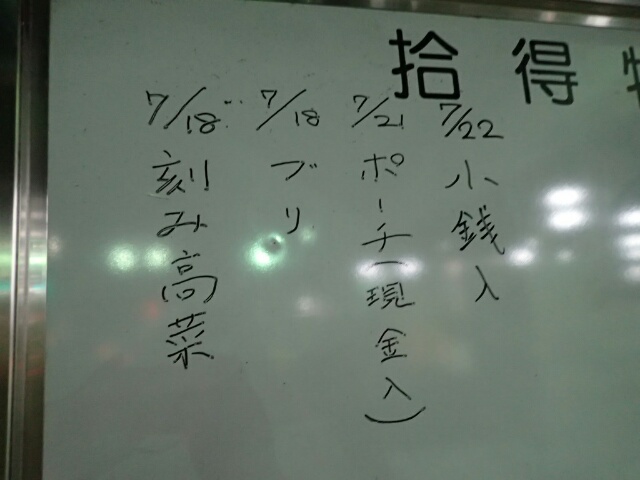 拾得物
7/22 小銭入
7/21 ポーチ(現金入)
7/18 ブリ
7/18 刻み高菜